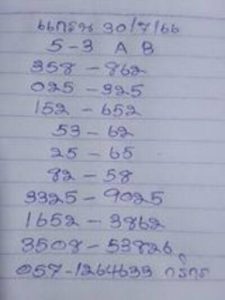 แกรน 30/7/66
5-3 A B
358 - 862
025 - 325
152 - 652
53 - 62
25 - 65
82 - 58
3325 - 9025
1652 - 3862
3508 - 53826
057-1264633